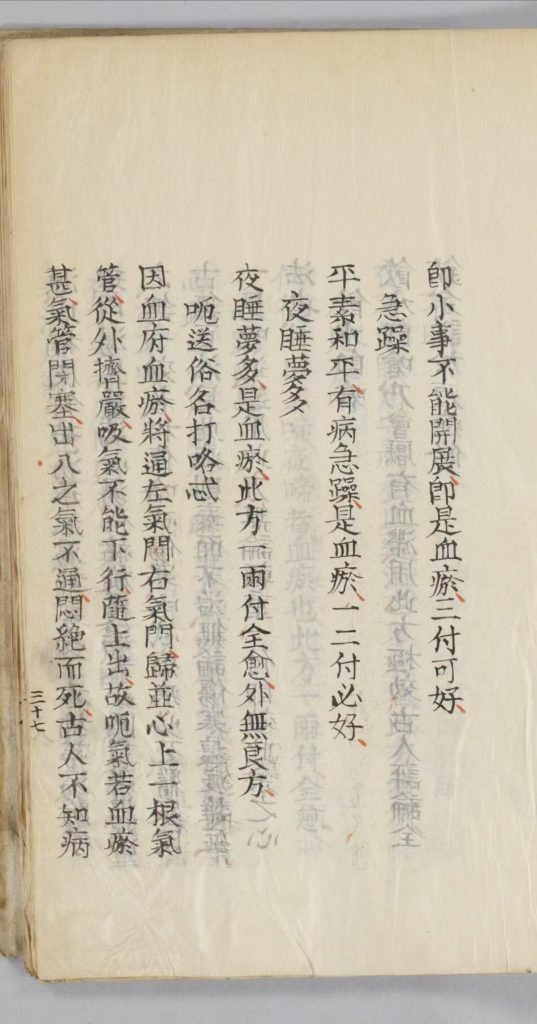 卽小事不能開展卽是血瘀三付可好
急躁
平素和平有病急躁是血瘀一二付必好
夜睡夢多
夜睡夢多是血瘀此方一兩付全愈外無良方
呃送俗名打咯忒
因血府血瘀將通左氣門右氣門歸並心上一根氣
管從外擠嚴吸氣不能下行隨上出故呃氣若血瘀
甚氣管閉塞出入之氣不通悶絕而死古人不知病
三十七